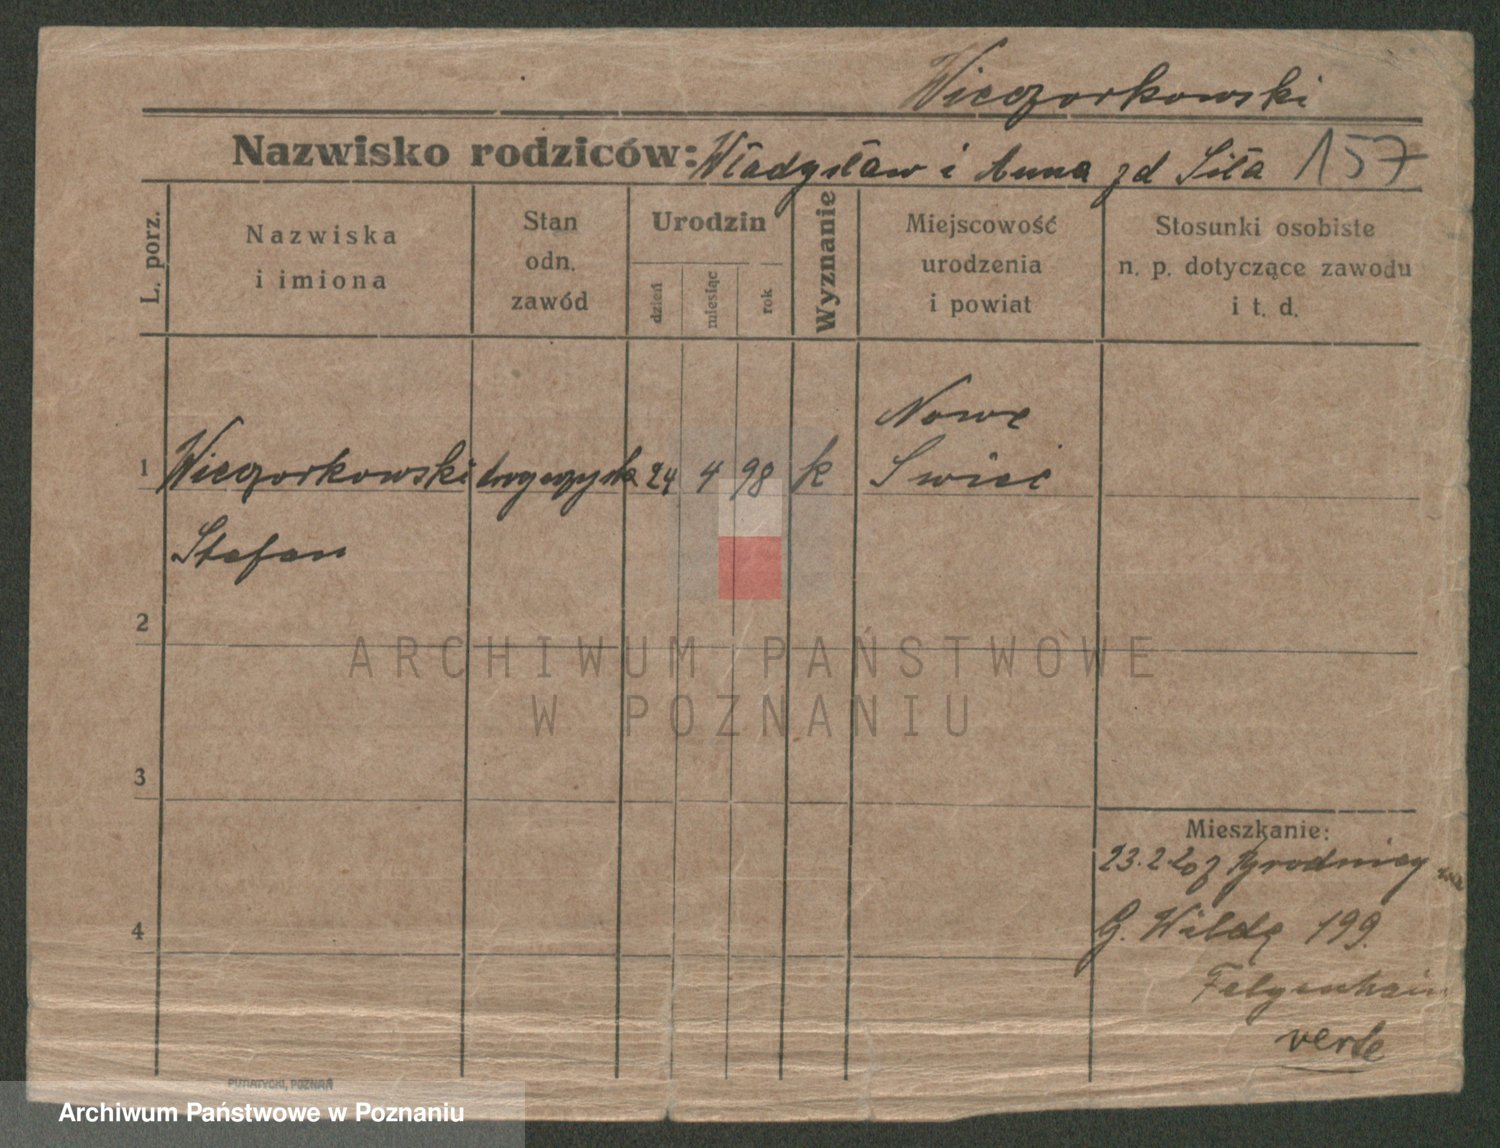 Wieczorkowski
Nazwisko rodziców: Władysław i Anna zd Siła 157
L. porz.
Nazwiska
i imiona
Stan
odn.
zawód
Urodzin
dzień
miesiąc
rok
Wyznanie
Miejscowość
urodzenia
i powiat
Stosunki osobiste
n. p. dotyczące zawodu
i t. d.
Nowe
1 Wieczorkowski 24 4 98 k Swiec
Stefan
2
ARCHIWUM PAŃSTWOWE
W POZNANIU
3
Mieszkanie:
23.2.20 z Brodnicy
4 G. Wildę 199.
verte
PUTIATYCKI, POZNAŃ
Archiwum Państwowe w Poznaniu